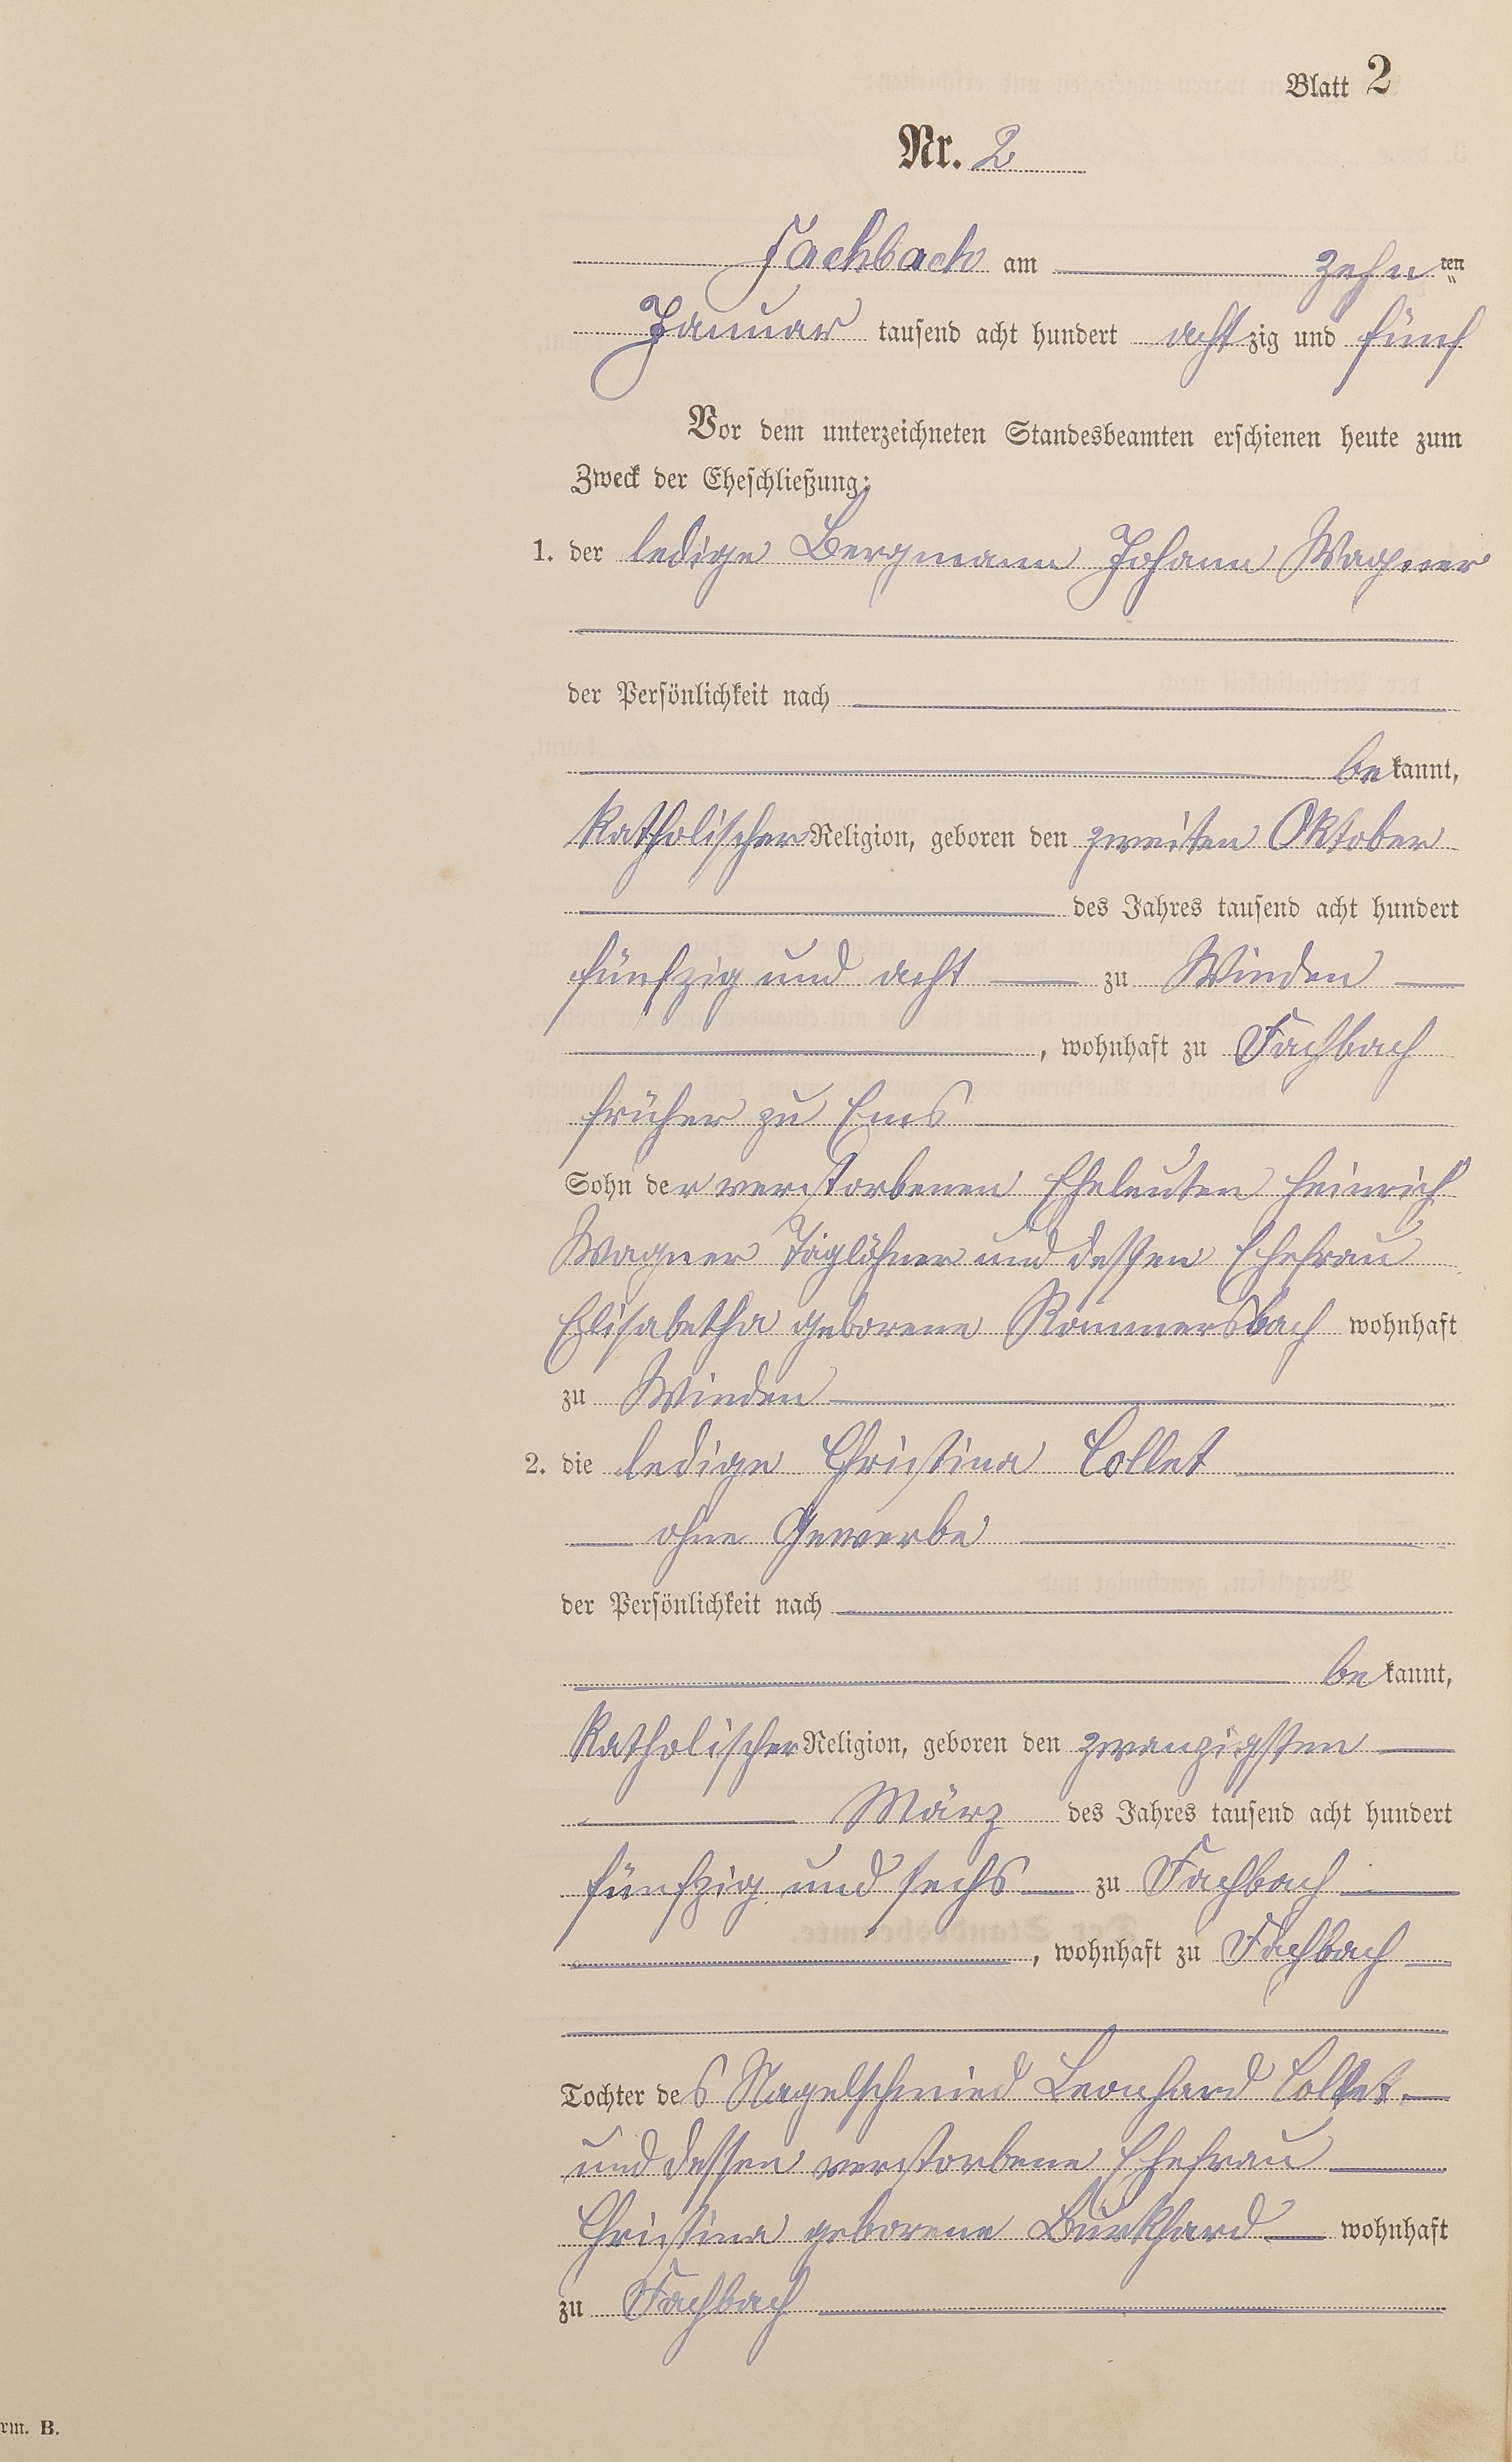 Blatt 2
Nr. 2
Fachbach am zehnten
Januar tausend acht hundert achtzig und fünf
Vor dem unterzeichneten Standesbeamten erschienen heute zum
Zweck der Eheschließung:
1. der ledige Bergmann Johann Wagner
der Persönlichkeit nach
bekannt,
katholischer Religion, geboren den zweiten Oktober
des Jahres tausend acht hundert
fünfzig und acht zu Winden
, wohnhaft zu Fachbach
früher zu Ems
Sohn der verstorbenen Eheleuten Heinrich
Wagner Taglöhner und dessen Ehefrau
Elisabetha geborene Rommersbach wohnhaft
zu Winden
2. die ledige Christina Collet
ohne Gewerbe
der Persönlichkeit nach
bekannt,
katholischer Religion, geboren den zwanzigsten
März des Jahres tausend acht hundert
fünfzig und sechs zu Fachbach
, wohnhaft zu Fachbach
Tochter des Nagelschmied Leonhard Collet
und dessen verstorbene Ehefrau
Christina geborene Burkhard wohnhaft
zu Fachbach
rm. B.